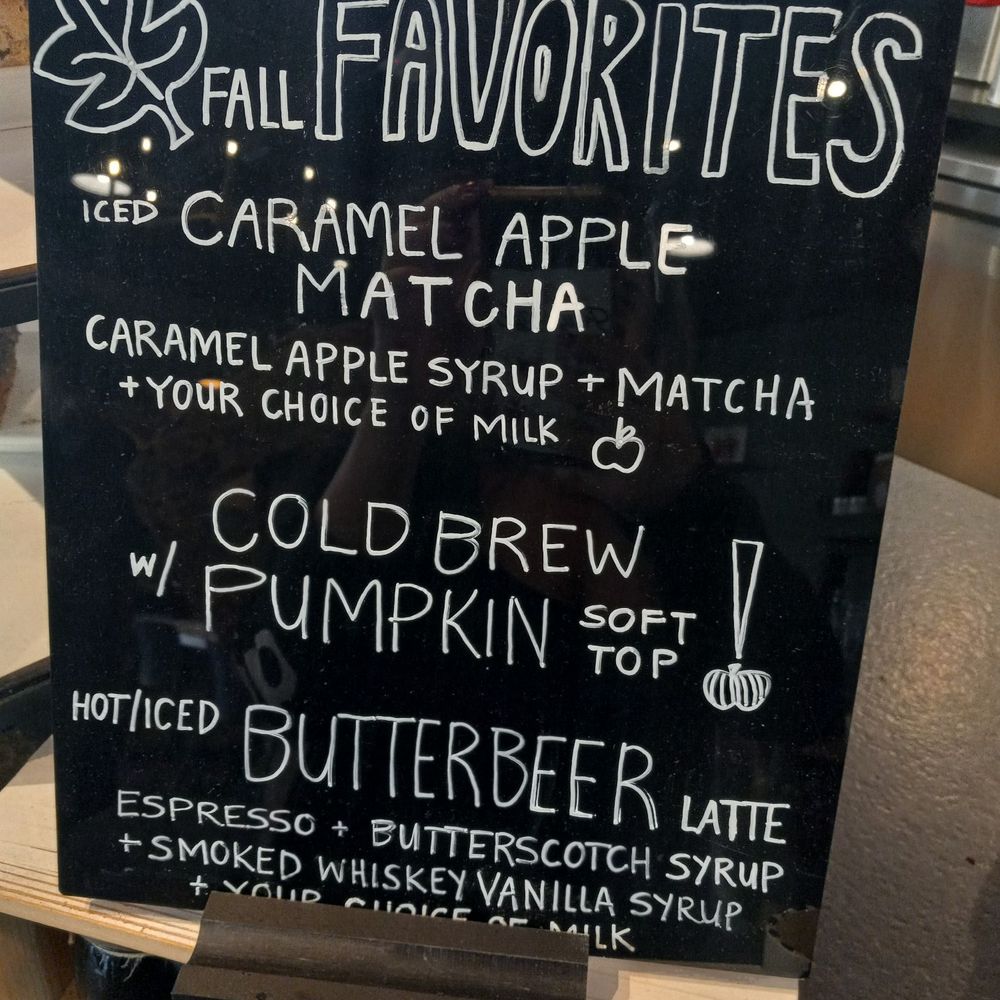 FALL FAVORITES
ICED CARAMEL APPLE
MATCHA
CARAMEL APPLE SYRUP + MATCHA
+ YOUR CHOICE OF MILK
COLD BREW
w/ PUMPKIN SOFT
TOP
HOT/ICED BUTTERBEER LATTE
ESPRESSO + BUTTERSCOTCH SYRUP
+ SMOKED WHISKEY VANILLA SYRUP
+ YOUR CHOICE OF MILK